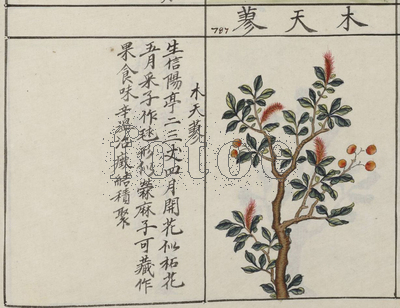 木天蓼
787
木天蓼
生信陽亭二三丈四月開花似柘花
五月采子作毬形似蔴子可藏作
果食味辛治癥結積聚